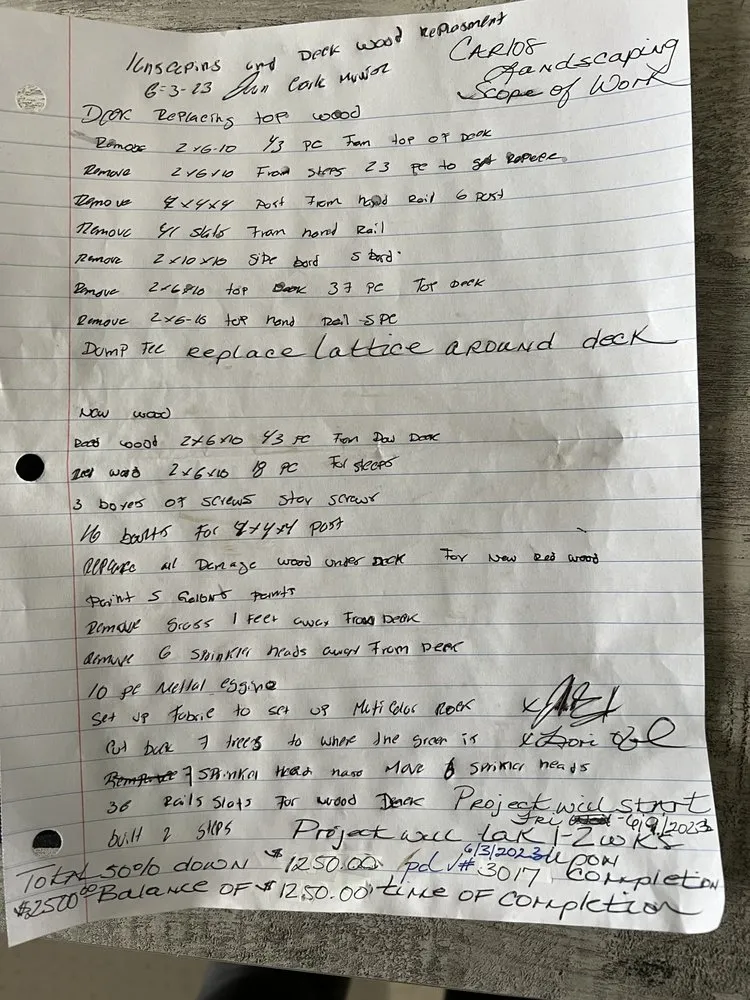 and Deck wood Replosment
CARlOS
Landscaping
6-3-23
Scope of Work
Deck Replacing top wood
Remove 2x6-10 43 PC From top of Deck
Remove 2x6x10 From steps 23 pc to get
Remove 4x4x4 Post From hand Rail 6 Post
Remove 41 slats From hand Rail
Remove 2x10x10 Side bord 5 bord
Remove 2x6x10 top 37 PC Top Deck
Remove 2x6-10 top hand Rail 5 PC
Dump Fee replace lattice around deck
New wood
Red wood 2x6x10 43 PC Deck
Red wood 2x6x10 18 PC For steeps
3 boxes of screws star screws
16 For 4x4x4 Post
RePlace all Damage wood under Deck For New Red wood
Paint 5 Galons paints
Remove Grass 1 Feet away From Deck
Remove 6 Sprinkler heads away From Deck
10 pc Mettal
Set up Fabric to set up Multicolor Rock
Put back 7 trees to where the green is
7 Sprinkler Head Move 6 sprinkler heads
36 Rails Slats For wood Deack Project will start
Fri 6/9/2023
built 2 steps Project will tak 1-2 wks
Total 50% down $1250.00 pd √# 3017 6/3/2023 upon completion
$2500.00 Balance of $1250.00 time of completion